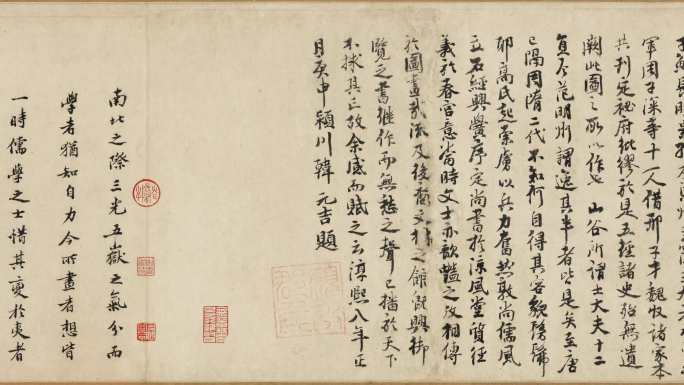 軍周子深等十一人借邢子才魏收諸家本
共刊定秘府紕繆於是五經諸史殆無遺
闕此圖之所以作也 山谷所謂士大夫十二
員今范明州謂逸其半者皆是矣至唐
已隔周隋二代不知何自得其容貌髣髴
耶高氏起索虜以兵力奮然敦尚儒風
立石經興黌序定尚書於涼風堂質經
義於春宮意當時文士亦歆豔之故相傳
於圖畫哉流及後齊文林之館既興御
覽之書雖作而無愁之聲已播於天下
不捄其亡故余感而賦之云淳熙八年正
月庚申潁川韓元吉題
南北之際三光五嶽之氣分而
學者猶知自力今所畫者想皆
一時儒學之士惜其變於夷者